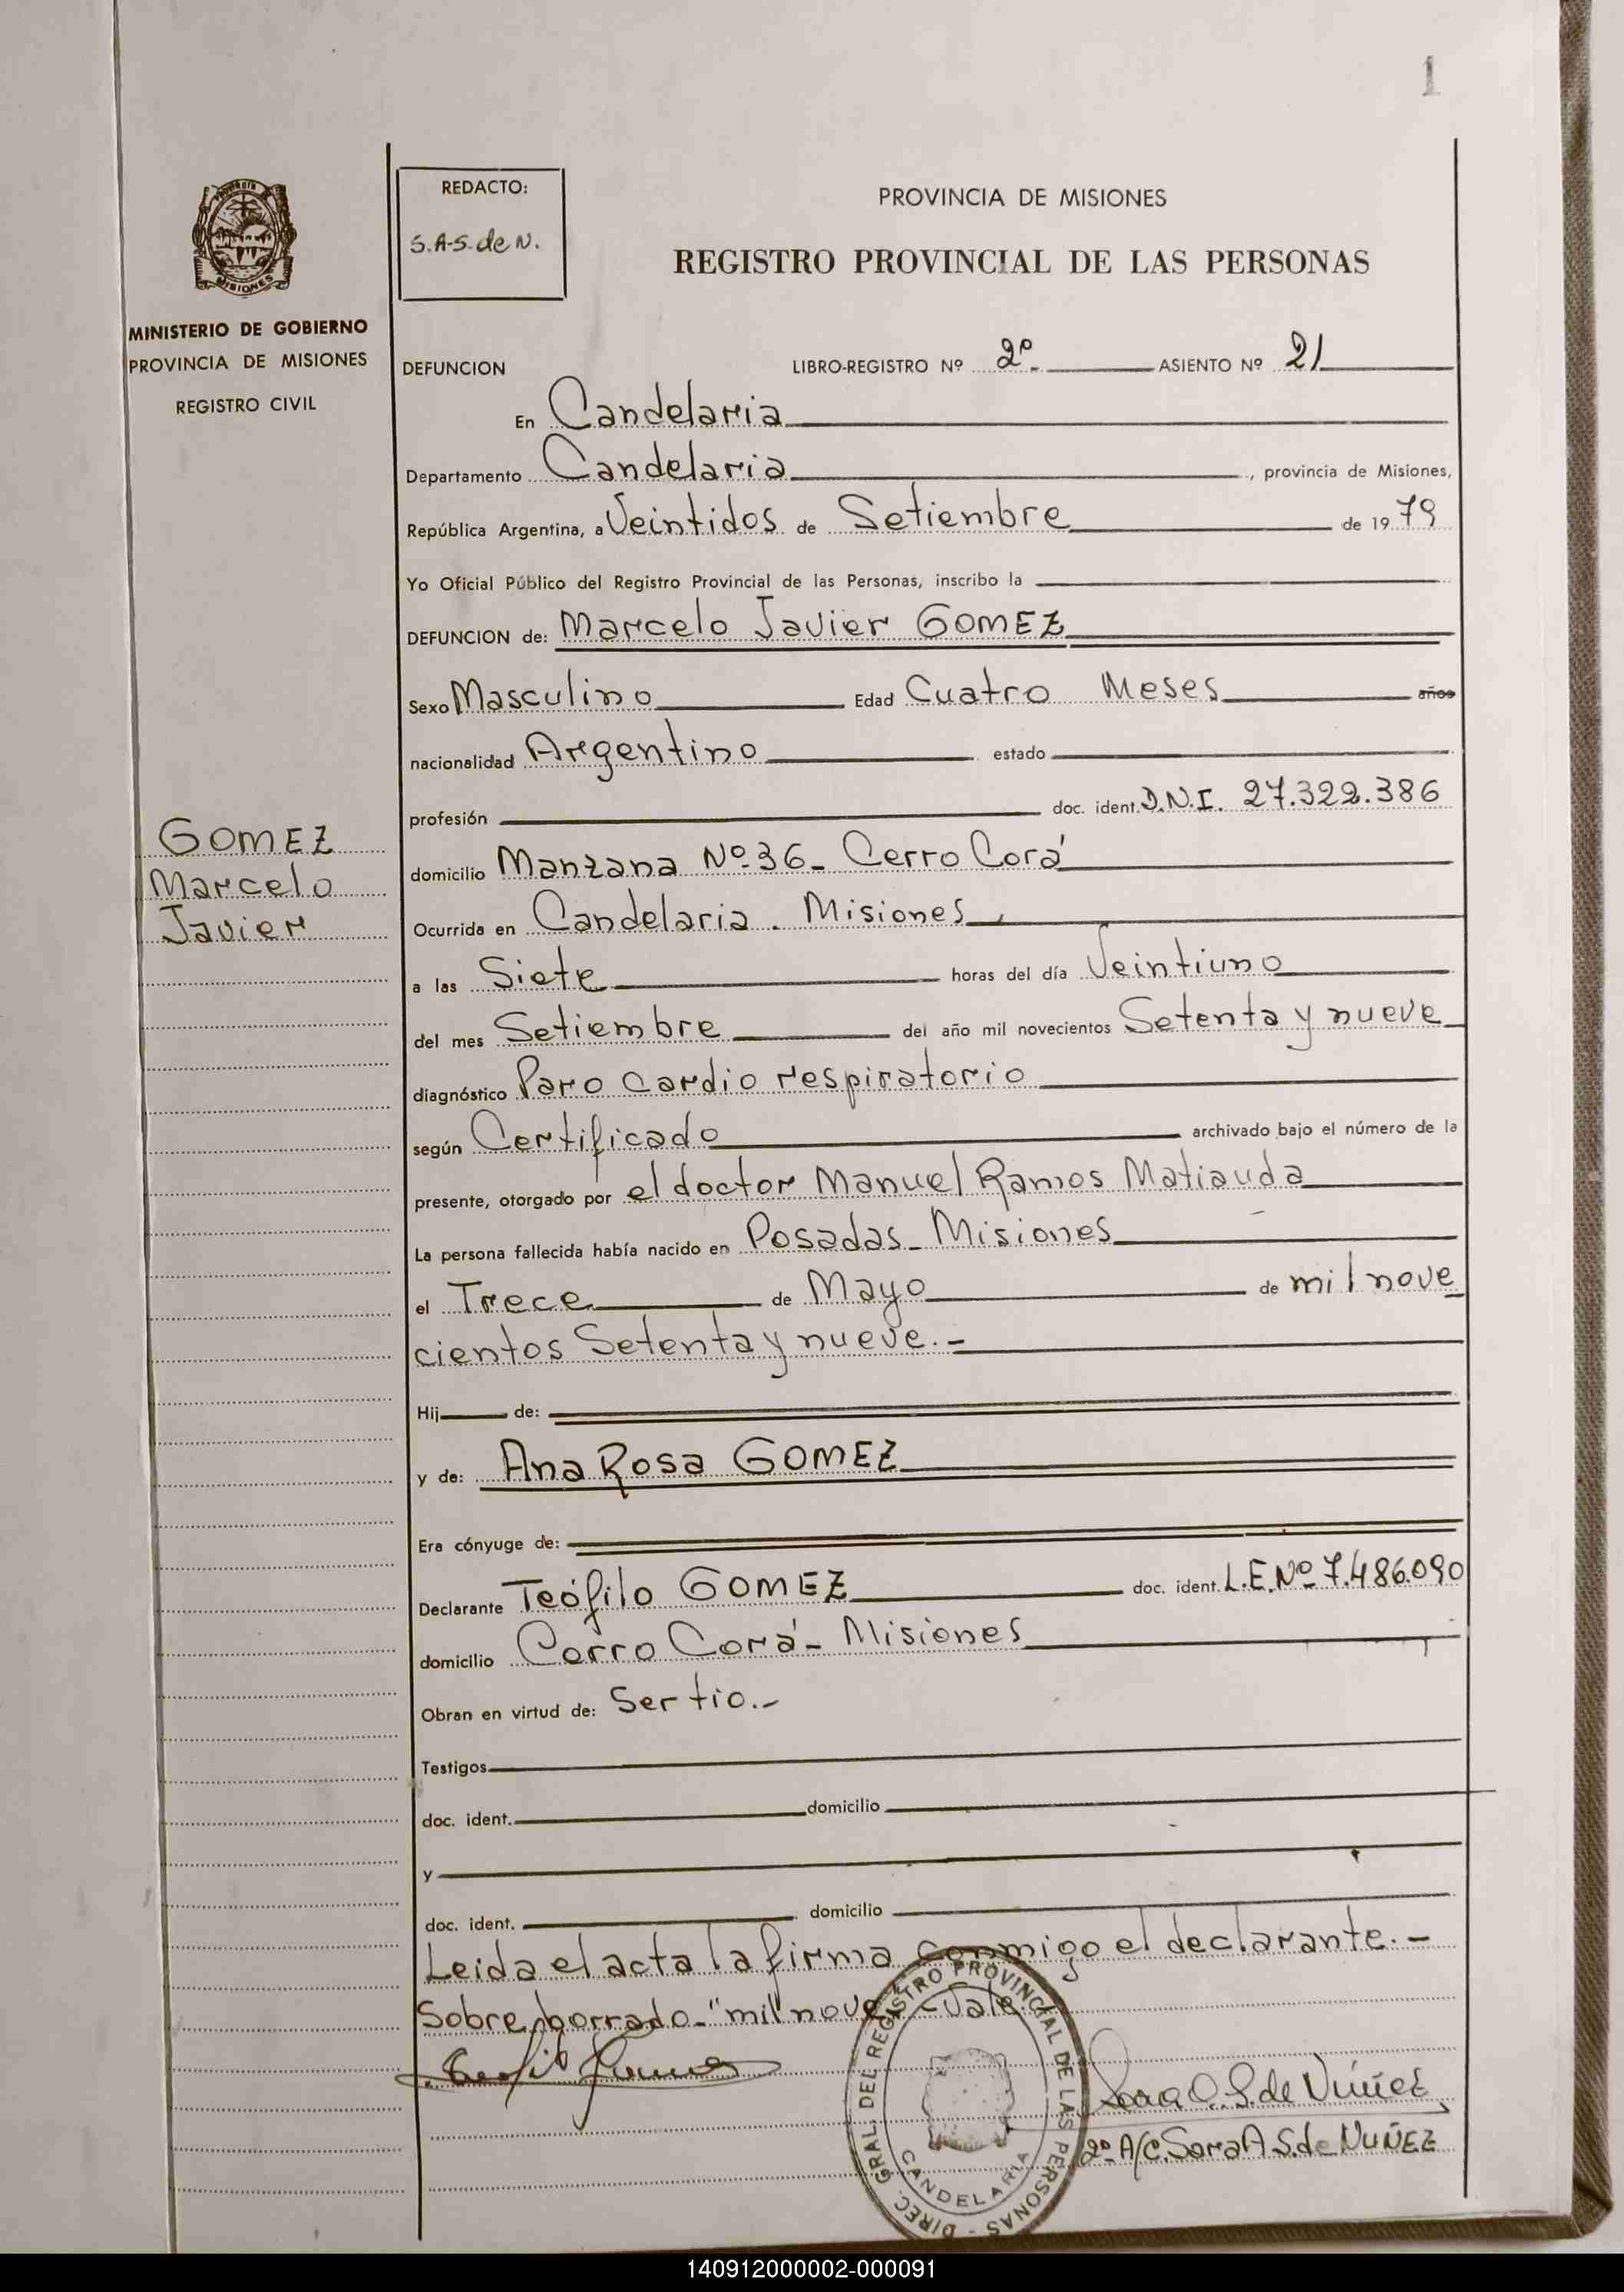 1
PROVINCIA DE MISIONES
REGISTRO PROVINCIAL DE LAS PERSONAS
REDACTO:
S.A-S. de N.
MISIONES
MINISTERIO DE GOBIERNO
PROVINCIA DE MISIONES
REGISTRO CIVIL
DEFUNCION LIBRO-REGISTRO Nº 2º. ASIENTO Nº 21
En Candelaria
Departamento Candelaria, provincia de Misiones,
República Argentina, a Veintidos de Setiembre de 19 79
Yo Oficial Público del Registro Provincial de las Personas, inscribo la
DEFUNCION de: Marcelo Javier GOMEZ
Sexo Masculino Edad Cuatro Meses años
nacionalidad Argentino estado
profesión doc. ident. D.N.I. 27.322.386
GOMEZ
Marcelo
Javier
domicilio Manzana Nº 36- Cerro Corá
Ocurrida en Candelaria. Misiones
a las Siete horas del día Veintiuno
del mes Setiembre del año mil novecientos Setenta y nueve
diagnóstico Paro Cardio respiratorio
según Certificado archivado bajo el número de la
presente, otorgado por el doctor Manuel Ramos Matiauda
La persona fallecida había nacido en Posadas- Misiones
el Trece de Mayo de mil nove
cientos Setenta y nueve.-
Hij de:
y de: Ana Rosa GOMEZ
Era cónyuge de:
Declarante Teófilo GOMEZ doc. ident. L.E.Nº 7.486.090
domicilio Cerro Corá- Misiones
Obran en virtud de: Ser tio.-
Testigos
doc. ident. domicilio
y
doc. ident. domicilio
Leida el acta la firma conmigo el declarante.-
Sobre borrado-"mil nove"-Vale
DIREC. GRAL. DEL REGISTRO PROVINCIAL DE LAS PERSONAS -
CANDELARIA
S. de Núñez
2º A/C. Sara A S. de NUÑEZ
140912000002-000091